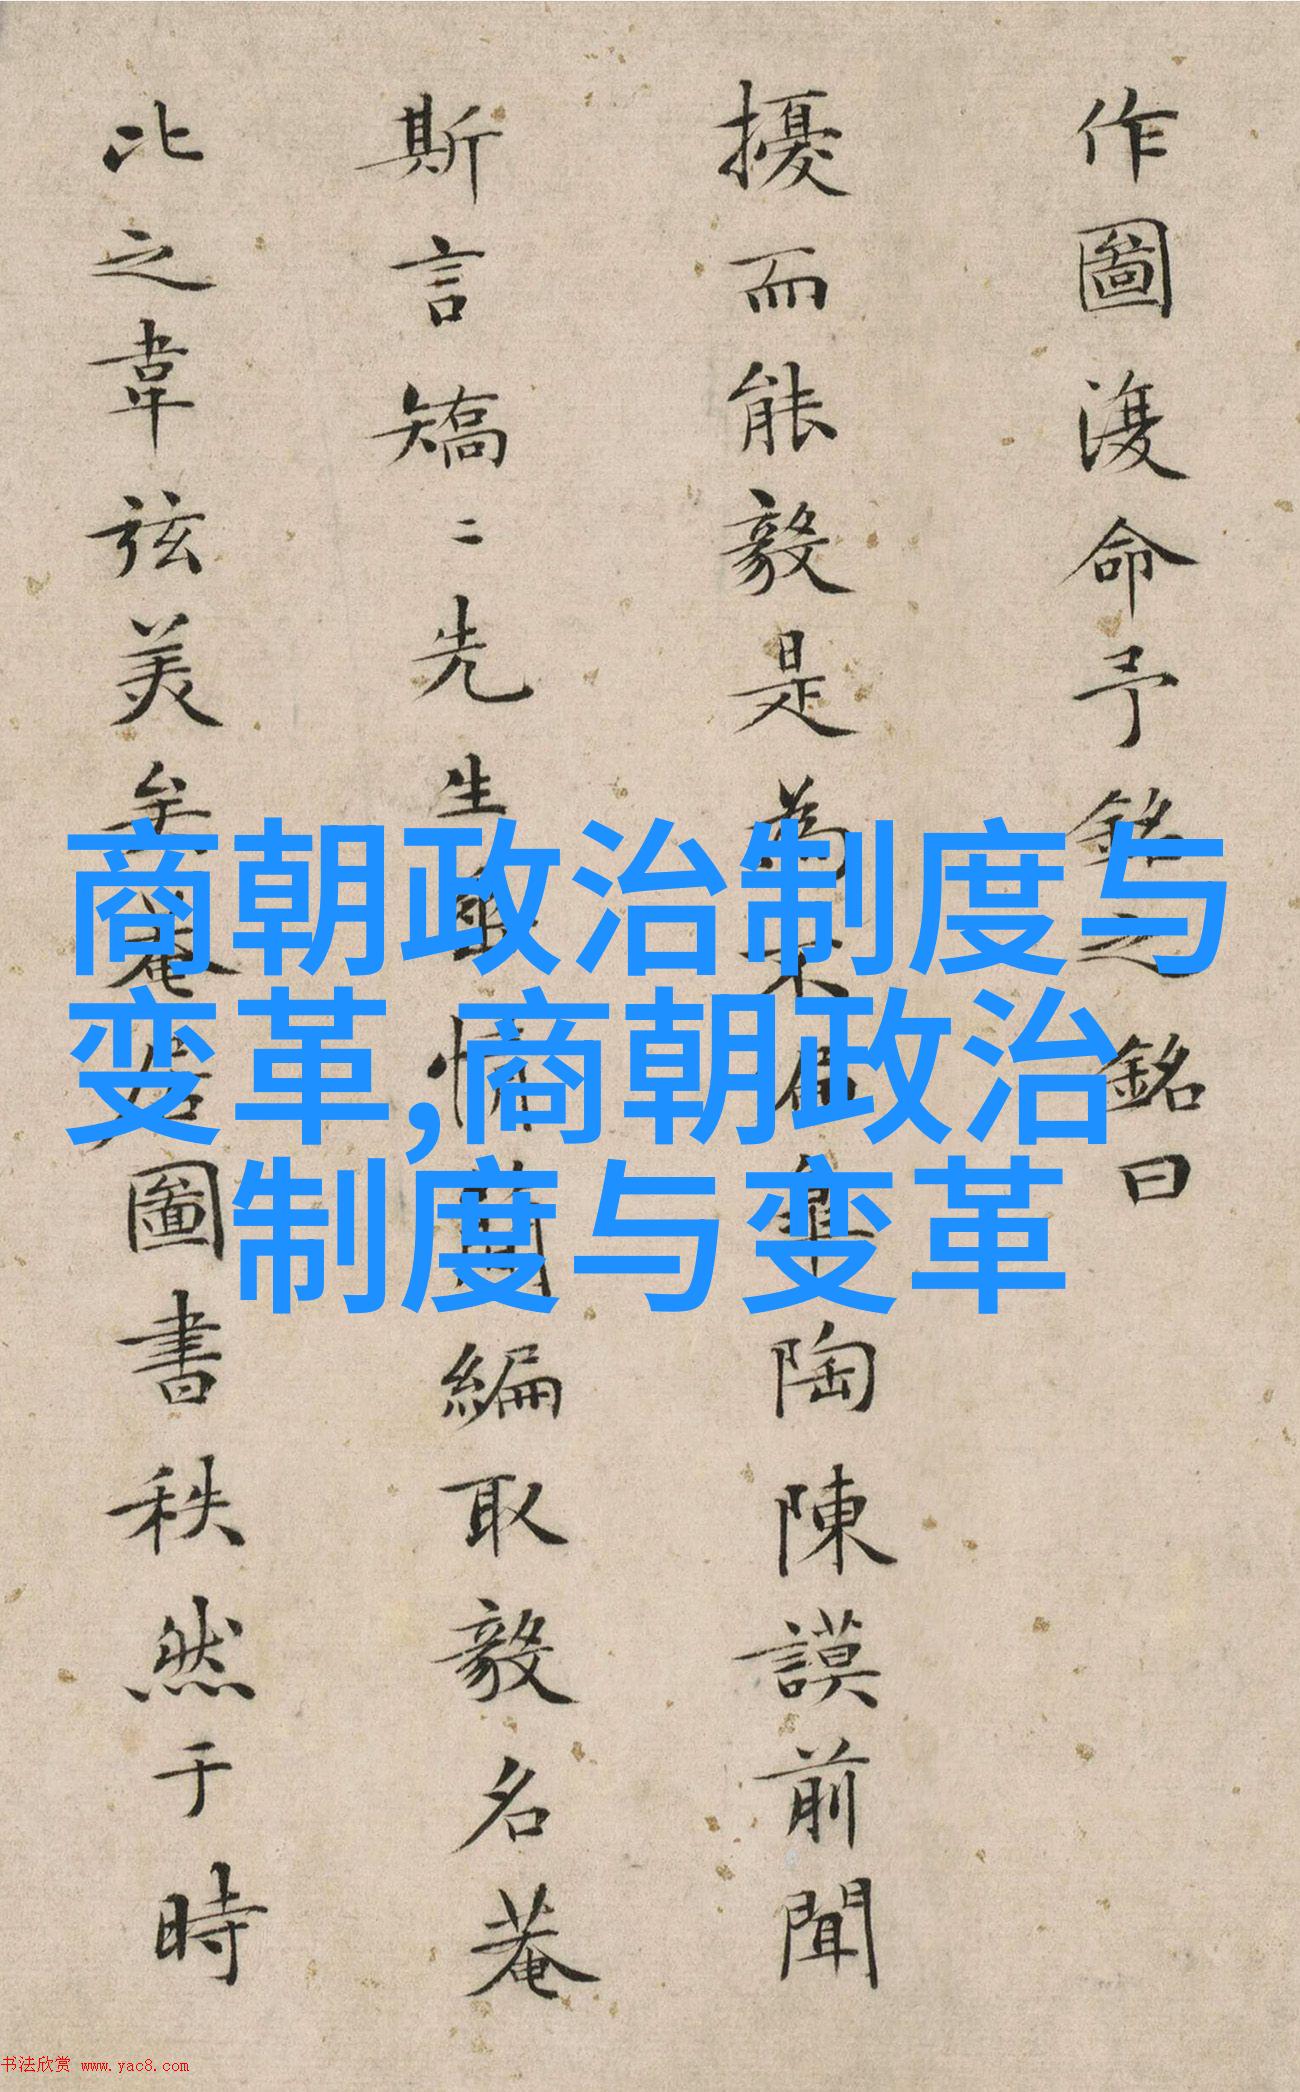 作圖復命予銘之銘曰
擾而能毅是為不扁皐陶陳謨前聞
斯言矯二先生性情簡編取毅名菴
比之韋弦美矣菴居圖書秩然于時
商朝政治制度与
变革,商朝政治
制度与变革
书法欣赏 www.yac8.com